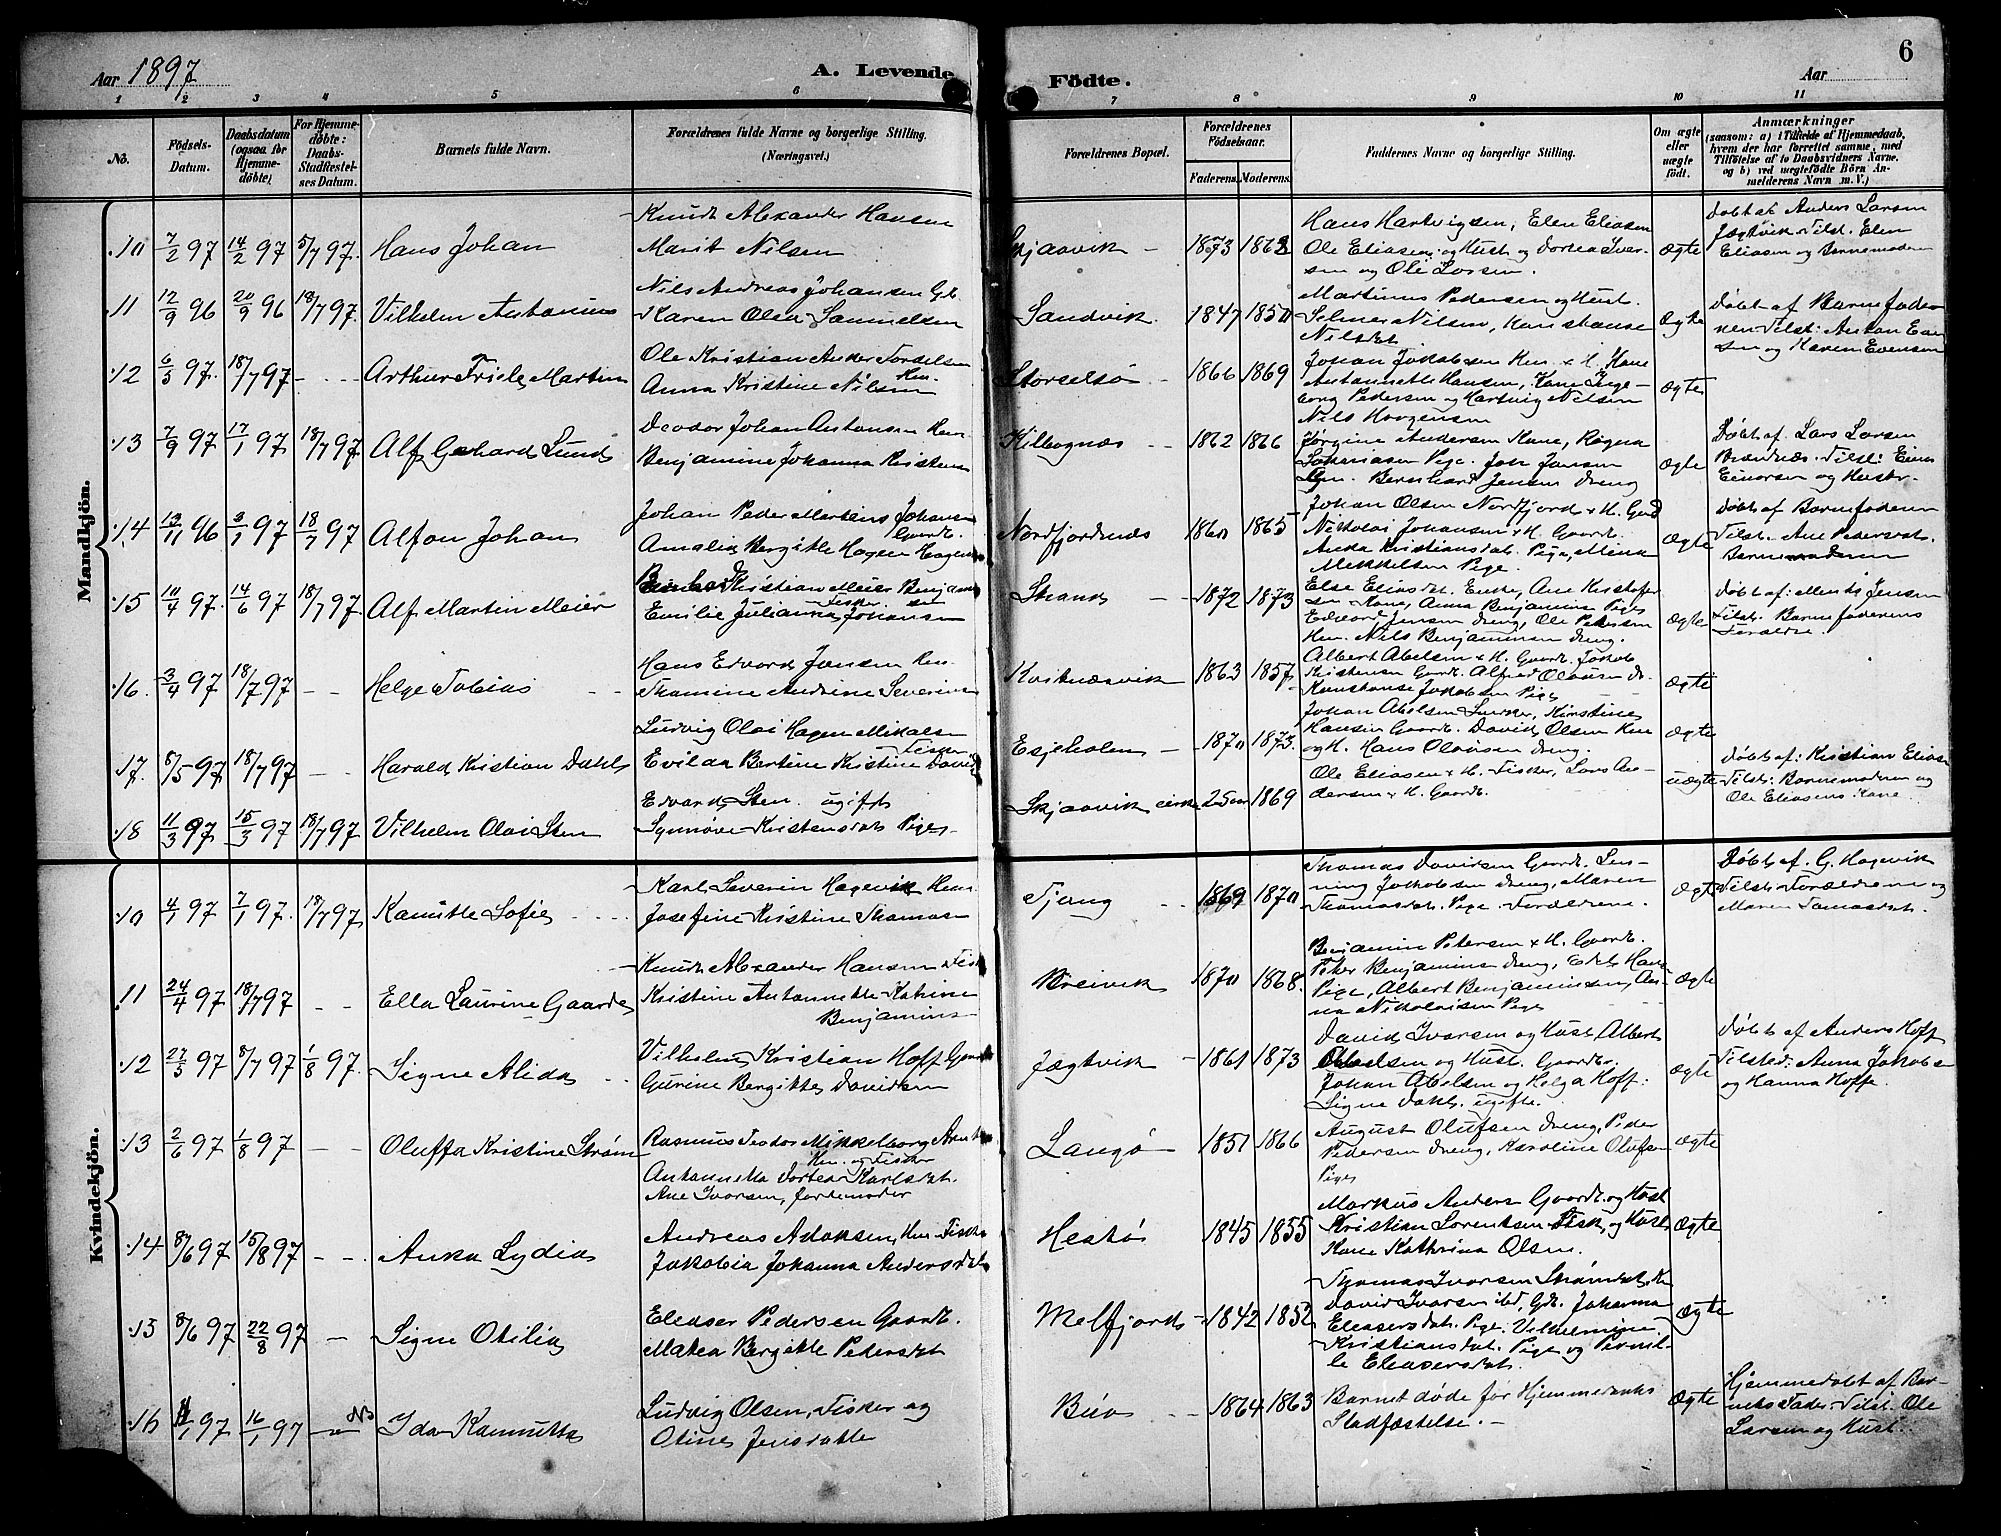 Aar 1897
A. Levende Födte.
Aar
6
1 2 3 4 5 6 7 8 9 10 11
No.
Födsels-Datum.
Daabsdatum (ogsaa for Hjemme-döbte)
For Hjemme-döbte: Daabs-Stadfæstel-ses Datum.
Barnets fulde Navn.
Forældrenes fulde Navne og borgerlige Stilling.
(Næringsvei.)
Forældrenes Bopæl.
Forældrenes Födselsaar.
Faderens. Moderens.
Faddernes Navne og borgerlige Stilling.
Om ægte eller uægte födt.
Anmærkninger
(saasom: a) i Tilfælde af Hjemmedaab,
hvem der har forrettet samme, med
Tilföielse af to Daabsvidners Navne.
og b) ved uægtefödte Börn An-
melderens Navn m. V.)
Mandkjön.
10 7/2 97 14/2 97 5/7 97. Hans Johan
Knudt Alexander Hansen
Marit Nilsen
Skjaavik - 1873 1862
Hans Hartvigsen, Elen Eliasen
Ole Eliasen og Hust og Dortea Ivar-
sen og Ole Larsen.
Ægte
Døbt af Anders Larsen
Jægtvik Tilst. Elen
Eliasen og Barnemoderen
11 12/9 96 20/9 96 18/7 97. Vilhelm Antonius
Nils Andreas Johansen Gb.
Karen Olea Samuelsen
Sandvik. 1847 1850
Martinus Pedersen og Hust.
Selmer Nilsen, Konstanse
Nilsdat
Ægte
Døbt af Barnefaderen
Tilst: Anton Even-
sen og Maren Evensen
12 6/3 97. 18/7 97 - - - Arthur Friele Martin
Ole Kristian Ander Tordelsen
Anna Kristine Nilsen
Storselsö - 1866 1869
Johan Jakobsen Hus. & H., Kone
Antonnette Hansen, Kone Inge-
borg Pedersen og Hartvig Nilsen
Ægte
13 7/9 97 17/1 97 18/7 97 Alf Gerhard Lund
Deodor Johan Antonsen Hus.
Benjamine Johanna Kristens
Kilbognæs - 1862 1866
Jørgine Andersen Kone, Ragna
Pige. Joh Jansen
Bernhard Jensen dreng
Ægte
Døbt af. Lars Larsen
Tilst: Einar
Einarsen og Hustr.
14 13/11 96 3/1 97 18/7 97 Alfon Johan
Johan Peder Martens Johansen Gaardb.
Amalia Bergitte Hagen
Nordfjordnæs 1860 1865
Johan Olsen Nordfjord & H. Gaard
Nikolai Johansen & H. Gaardb.
Anda Kristiansdat. Pige, Mina
Mekkelsen Pige.
Ægte
Døbt af Barnefaderen
Tilst. Ane Pedersdat.
Barnemoderen
15 10/4 97. 14/6 97 18/7 97. Alf Martin Meier
Kristian Meier Benjamin
Emilie Julianna Johansen
Strand - - 1872 1873
Else Eliasdat. Enke, Ane Kristofer-
sen Kone, Anna Benjamins Pige
Edvard Jensen dreng, Ole Pedersen
Hus. Nils Benjaminsen dreng.
Ægte
Døbt af: Jensen
Tilst: Barnefaderens
Forældre.
16. 3/4 97 18/7 97 - - Helge Tobias
Hans Edvard Jansen Hus.
Thomine Andrine Severins
Kvitnæsvik - 1863 1857
Albert Abelsen & H. Gaardb. Jakob
Kristensen Gaardb. Alfred Olausen do.
Konstanse Jakobsen Pige
Ægte
17. 8/5 97 18/7 97 - - Harald Kristian Dahl
Ludvig Olai Hagen Mikalsen Fisker
Evilda Bertine Kristine David
Esjeholmen - 1870 1873.
Johan Abelsen Kirstine
Hansen Gaardb. David Olsen Hus
og H. Hans Olausen dreng.
Ægte
18 11/3 97 15/3 97 18/7 97 Vilhelm Olai Sten
Edvard Sten. ugift
Synnøve Kristensdat Pige
Skjaavik cirka 25 aar 1869
Ole Eliasen & H. Fisker, Lars An-
dersen & H. Gaardb.
uægte
Døbt af: Kristian Elias
Tilst: Barnemoderen og
Ole Eliasens Kone
Kvindekjön.
10 4/1 97 7/1 97. 18/7 97 Kamitte Sofie
Karl Severin Hagevik Hus.
Josefine Kristine Thomas
Tjong - - 1869 1870
Thomas Davidsen Gaardb. Len-
ning Jakobsen dreng, Maren
Thomasdat. Pige. Forældrene.
Ægte
Døbt af. G. Hagevik
Tilst: Forældrene og
Maren Tomasdat.
11 24/4 97 18/7 97 - - Ella Laurine Gaarde
Knudt Alexander Hansen Fisk
Kristine Antonnette Katrine
Benjamins
Breivik 1870 1868.
Benjamin Petersen & H. Gaardb.
Peter Benjamins dreng, Edel Hans
Pige, Albert Benjaminsen, An-
na Nikolaisen Pige
Ægte
12 27/5 97 8/7 97 1/8 97. Signe Alida
Vilhelm Kristian Hoff
Gurine Bergitte Davidsen
Jægtvik - 1861 1873
David Ivarsen og Hust Albert
Abelsen og Hust. Gaardbr.
Johan Abelsen og Helga Hoff:
Signe Dahl. ugifte.
Ægte
Døbt af Anders Hoff
Tilsted: Anna Jakobsen
og Hanna Hoff.
13 2/6 97 1/8 97 - - Oluffa Kristine Strøm
Rasmus Teodor Mikkelborg
Hus. og Fisker
Antonnetta Dortea Karlsdat.
Ane Ivarsen, Jordemoder
Langö 1851 1866
August Olufsen dreng, Peder
Pedersen dreng, Karoline Olufsen
Pige
Ægte
14 8/6 97 15/8 97 - - Anka Lydia
Andreas Adolsen, Hus. Fisk
Jakobia Johanna Andersdat
Hestö 1845 1855
Markus Anders Gaardb. og Hust
Kristian Lorentsen Fisk, og Hust
Kone Kathrina Olsen.
Ægte
15 8/6 97 22/8 97 - Signe Otilia
Eleaser Pedersen Gaardb.
Matea Bergitte Pedersdat
Melfjord - 1842 1852
Thomas Ivarsen
David Ivarsen ibd, Gb. Johanna
Eleasersdat. Pige. Vilhelmine
Kristiansdat. Pige og Pernil-
le Eleasersdat.
Ægte
16 97 16/1 97 Nb Ida Kamitta
Ludvig Olsen, Fisker og
Otine Jensdatte
1864 1863
Barnet døde før Hjemmedaabs
Stadfæstelse. -
Ægte
Hjemmedøbt af Bar-
nets Fader Tilst. Ole
Larsen og Hust.